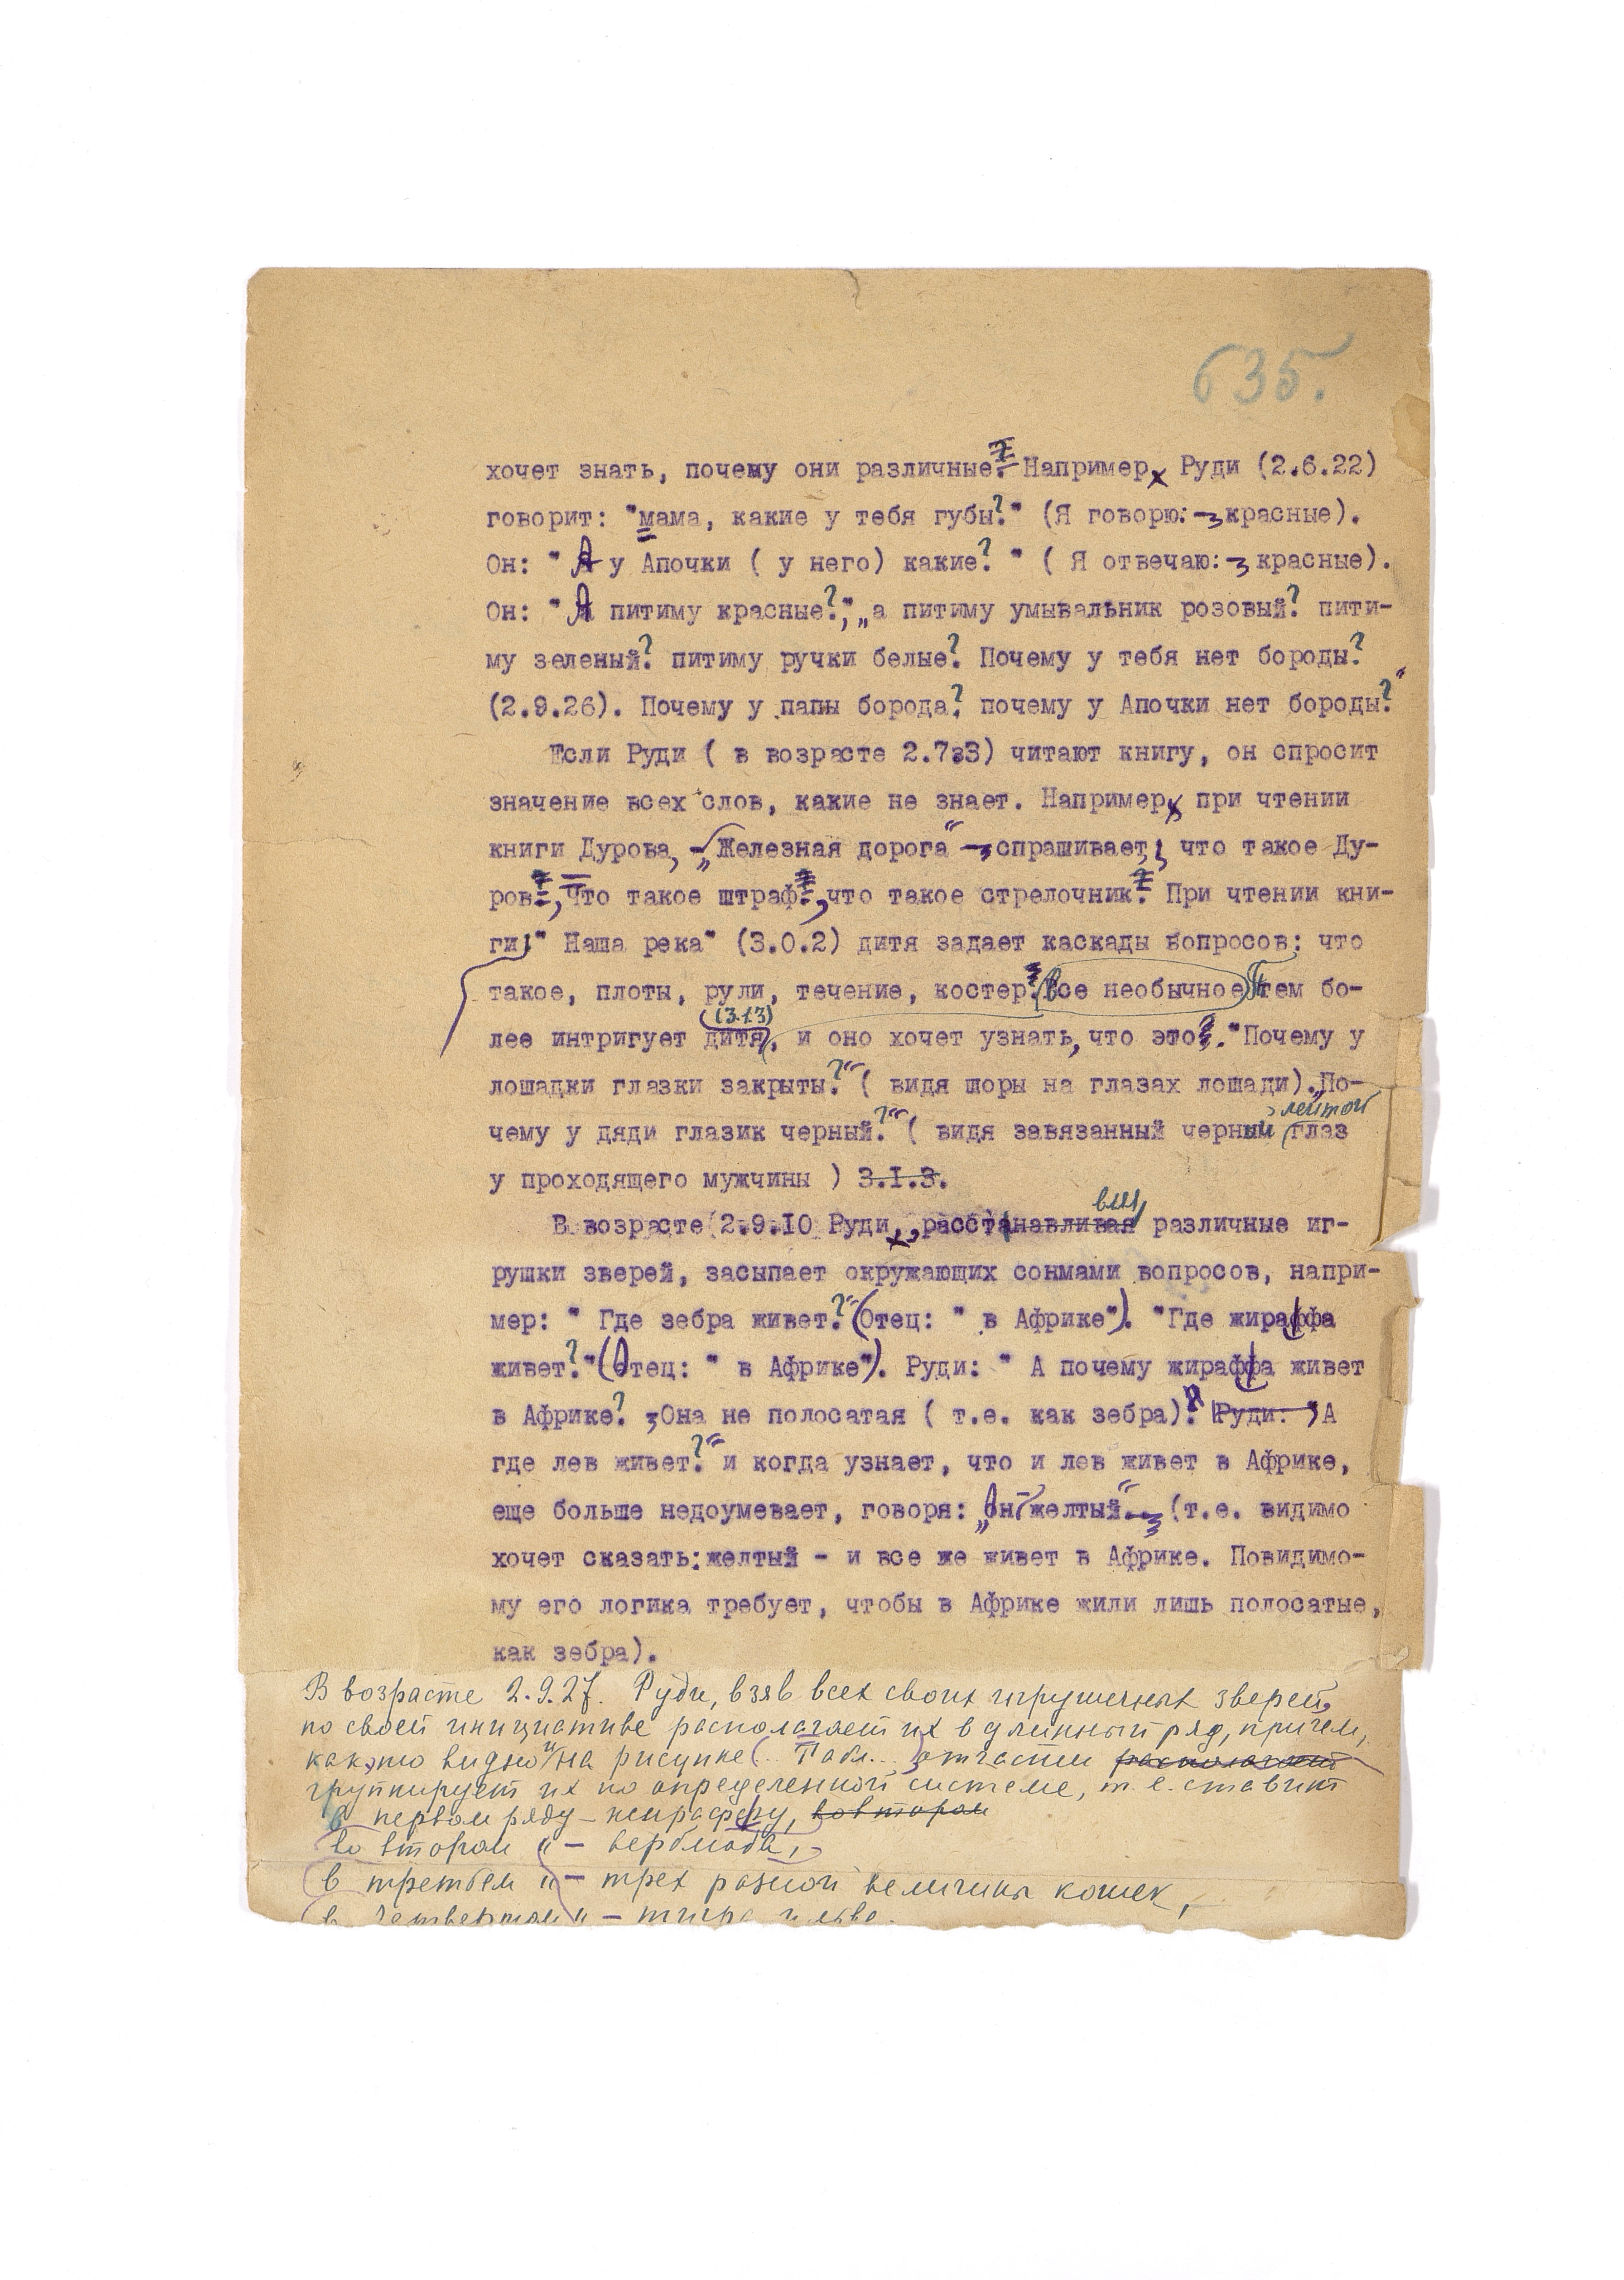 635.
хочет знать, почему они различные. Например Руди (2.6.22)
говорит: "мама, какие у тебя губы?" (Я говорю: красные).
Он: " А у Апочки ( у него) какие? " ( Я отвечаю: красные).
Он: " А питиму красные?", „а питиму умывальник розовый? пити-
му зеленый? питиму ручки белые? Почему у тебя нет бороды?
(2.9.26). Почему у папы борода? почему у Апочки нет бороды?"
Если Руди ( в возрасте 2.7.3) читают книгу, он спросит
значение всех слов, какие не знает. Например при чтении
книги Дурова, „Железная дорога“ спрашивает, что такое Ду-
ров, что такое штраф, что такое стрелочник. При чтении кни-
ги " Наша река" (3.0.2) дитя задает каскады вопросов: что
такое, плоты, рули, течение, костер. Все необычное тем бо-
(3.1.3)
лее интригует дитя, и оно хочет узнать, что это. "Почему у
лошадки глазки закрыты?“ ( видя шоры на глазах лошади). „По-
лентой
чему у дяди глазик черный?“ ( видя завязанный черный глаз
у проходящего мужчины ) 3.1.3.
вляя
В возрасте (2.9.10 Руди, расстанавливая различные иг-
рушки зверей, засыпает окружающих сонмами вопросов, напри-
мер: " Где зебра живет?“ (Отец: " в Африке"). "Где жираффа
живет?" (Отец: " в Африке"). Руди: " А почему жираффа живет
в Африке? Она не полосатая ( т.е. как зебра)." Руди: "А
где лев живет?“ и когда узнает, что и лев живет в Африке,
еще больше недоумевает, говоря: „Он желтый“ (т.е. видимо
хочет сказать: желтый - и все же живет в Африке. Повидимо-
му его логика требует, чтобы в Африке жили лишь полосатые,
как зебра).
В возрасте 2.9.27. Руди, взяв всех своих игрушечных зверей,
по своей инициативе располагает их в длинный ряд, причем,
как это видно и на рисунке (.. Табл... ) отчасти располагает
группирует их по определенной системе, т.е. ставит
в первом ряду – жираффу, во втором
во втором " – верблюда,
в третьем " – трех разной величины кошек,
в четвертом " – тигра и льва.